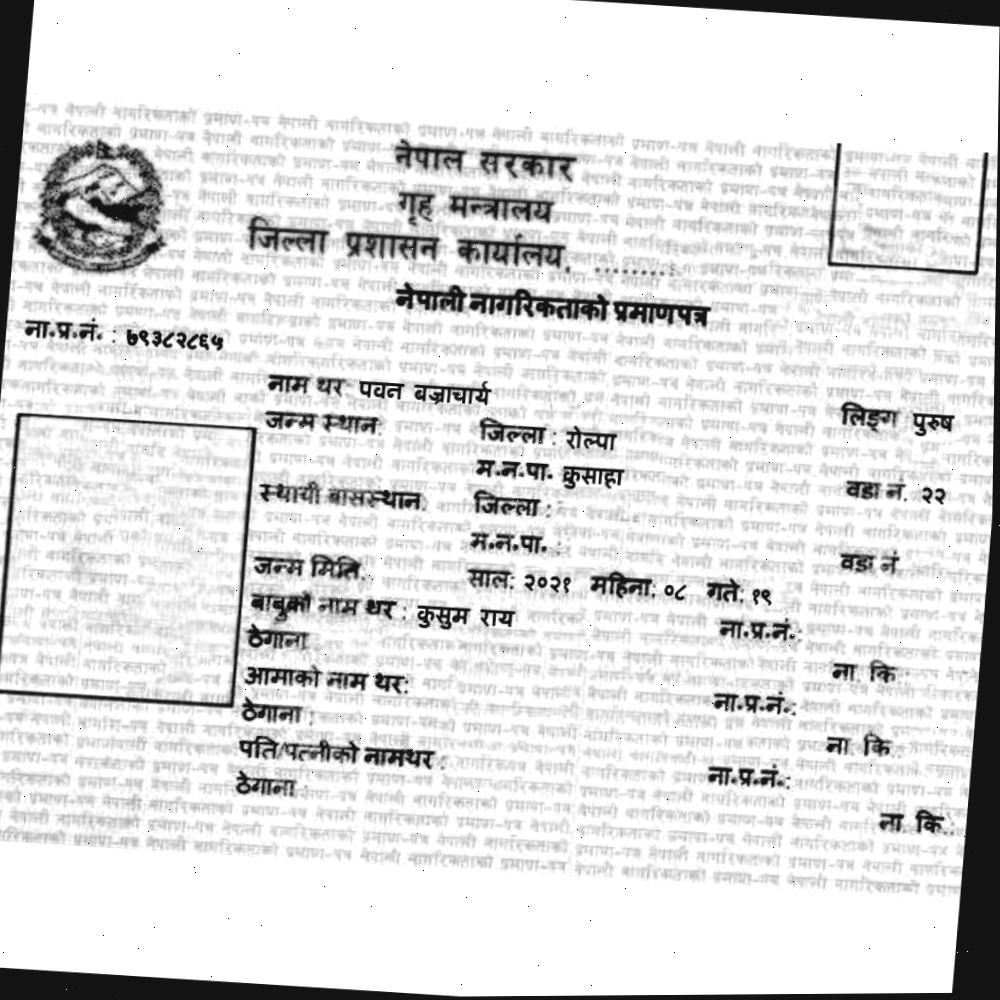 नेपाल सरकार
गृह मन्त्रालय
जिल्ला प्रशासन कार्यालय, .........
नेपाली नागरिकताको प्रमाणपत्र
ना.प्र.नं. : ७९३८२८६५
नाम थर: पवन बज्राचार्य लिङ्ग पुरुष
जन्म स्थान: जिल्ला : रोल्पा
म.न.पा. कुसाहा वडा नं. २२
स्थायी बासस्थान: जिल्ला :
म.न.पा. : वडा नं
जन्म मिति: साल: २०२१ महिना: ०८ गते: १९
बाबुको नाम थर : कुसुम राय ना.प्र.नं.:
ठेगाना ना. कि :
आमाको नाम थर: ना.प्र.नं.:
ठेगाना : ना. कि :
पति/पत्नीको नामथर : ना.प्र.नं.:
ठेगाना : ना. कि :